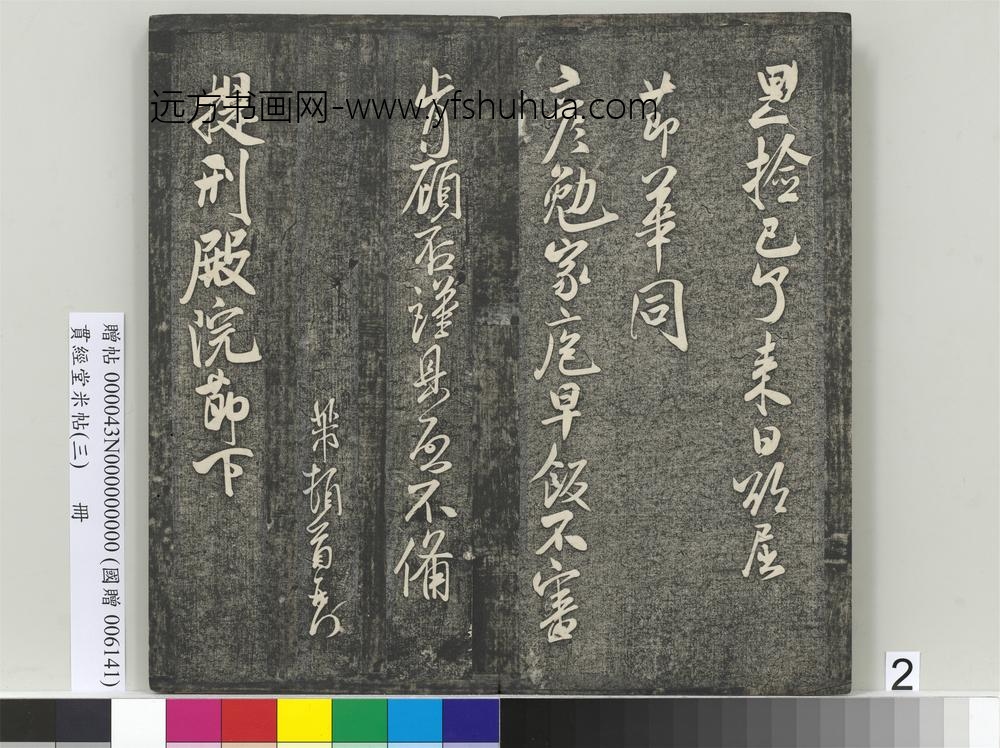 撿已了来日欲屈
節華同
彦勉家庖早飯不審
肯顧否謹具啓不備
芾頓首再拜
提刑殿院節下
远方书画网-www.yfshuhua.com
贈帖 000043N000000000 (國贈 006141)
貫經堂米帖(三) 冊
2